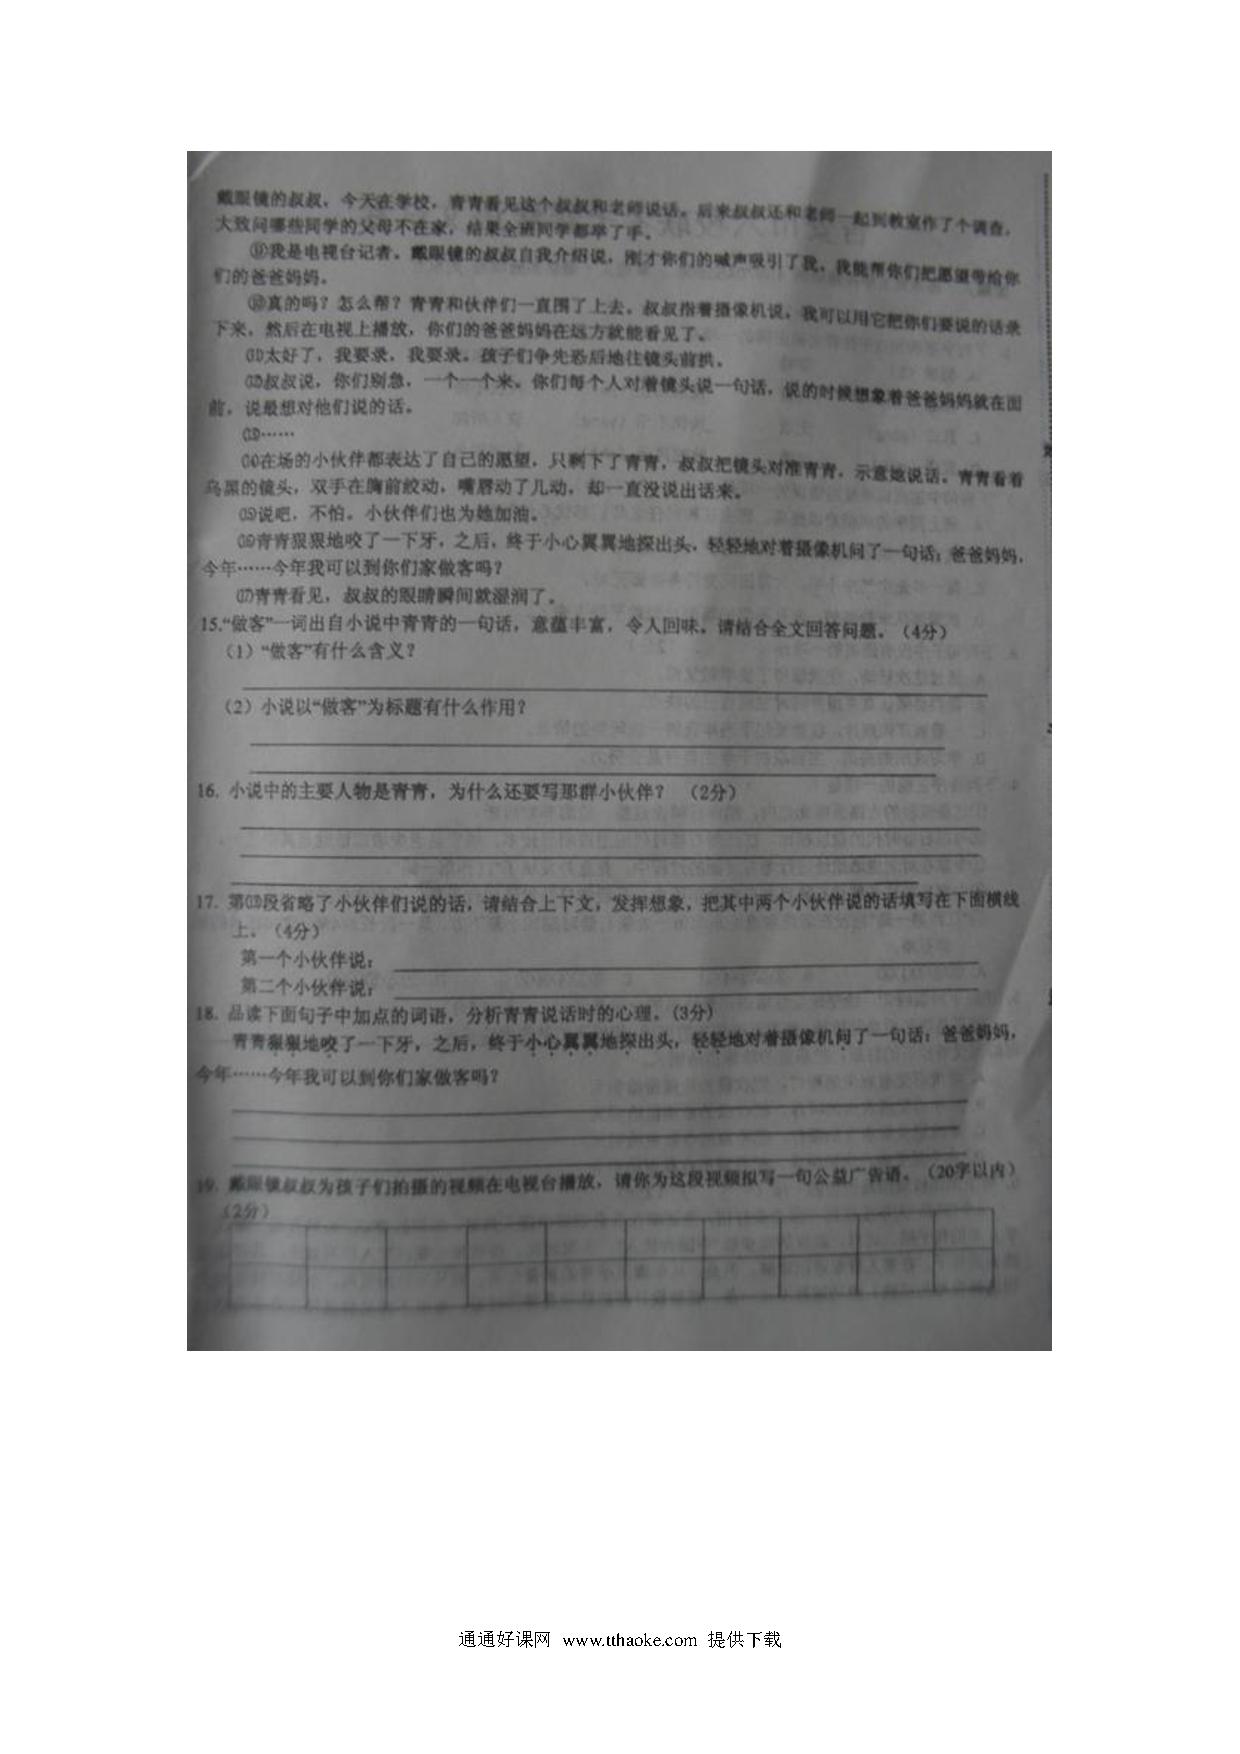 戴眼镜的叔叔，今天在学校，青青看见这个叔叔和老师说话。后来叔叔还和老师一起到教室作了个调查，
大致问哪些同学的父母不在家，结果全班同学都举了手。
⑼我是电视台记者。戴眼镜的叔叔自我介绍说，刚才你们的喊声吸引了我，我能帮你们把愿望带给你
们的爸爸妈妈。
⑽真的吗？怎么帮？青青和伙伴们一直围了上去。叔叔指着摄像机说，我可以用它把你们要说的话录
下来，然后在电视上播放，你们的爸爸妈妈在远方就能看见了。
⑾太好了，我要录，我要录。孩子们争先恐后地往镜头前拱。
⑿叔叔说，你们别急，一个一个来。你们每个人对着镜头说一句话，说的时候想象着爸爸妈妈就在面
前，说最想对他们说的话。
⒀……
⒁在场的小伙伴都表达了自己的愿望，只剩下了青青，叔叔把镜头对准青青，示意她说话。青青看着
乌黑的镜头，双手在胸前绞动，嘴唇动了几动，却一直没说出话来。
⒂说吧，不怕。小伙伴们也为她加油。
⒃青青狠狠地咬了一下牙，之后，终于小心翼翼地探出头，轻轻地对着摄像机问了一句话：爸爸妈妈，
今年……今年我可以到你们家做客吗？
⒄青青看见，叔叔的眼睛瞬间就湿润了。
15.“做客”一词出自小说中青青的一句话，意蕴丰富，令人回味。请结合全文回答问题。（4分）
（1）“做客”有什么含义？
（2）小说以“做客”为标题有什么作用？
16. 小说中的主要人物是青青，为什么还要写那群小伙伴？ （2分）
17. 第⒀段省略了小伙伴们说的话，请结合上下文，发挥想象，把其中两个小伙伴说的话填写在下面横线
上。（4分）
第一个小伙伴说：
第二个小伙伴说：
18. 品读下面句子中加点的词语，分析青青说话时的心理。（3分）
青青狠狠地咬了一下牙，之后，终于小心翼翼地探出头，轻轻地对着摄像机问了一句话：爸爸妈妈，
今年……今年我可以到你们家做客吗？
19. 戴眼镜叔叔为孩子们拍摄的视频在电视台播放，请你为这段视频拟写一句公益广告语。（20字以内）
（2分）
通通好课网 www.tthaoke.com 提供下载